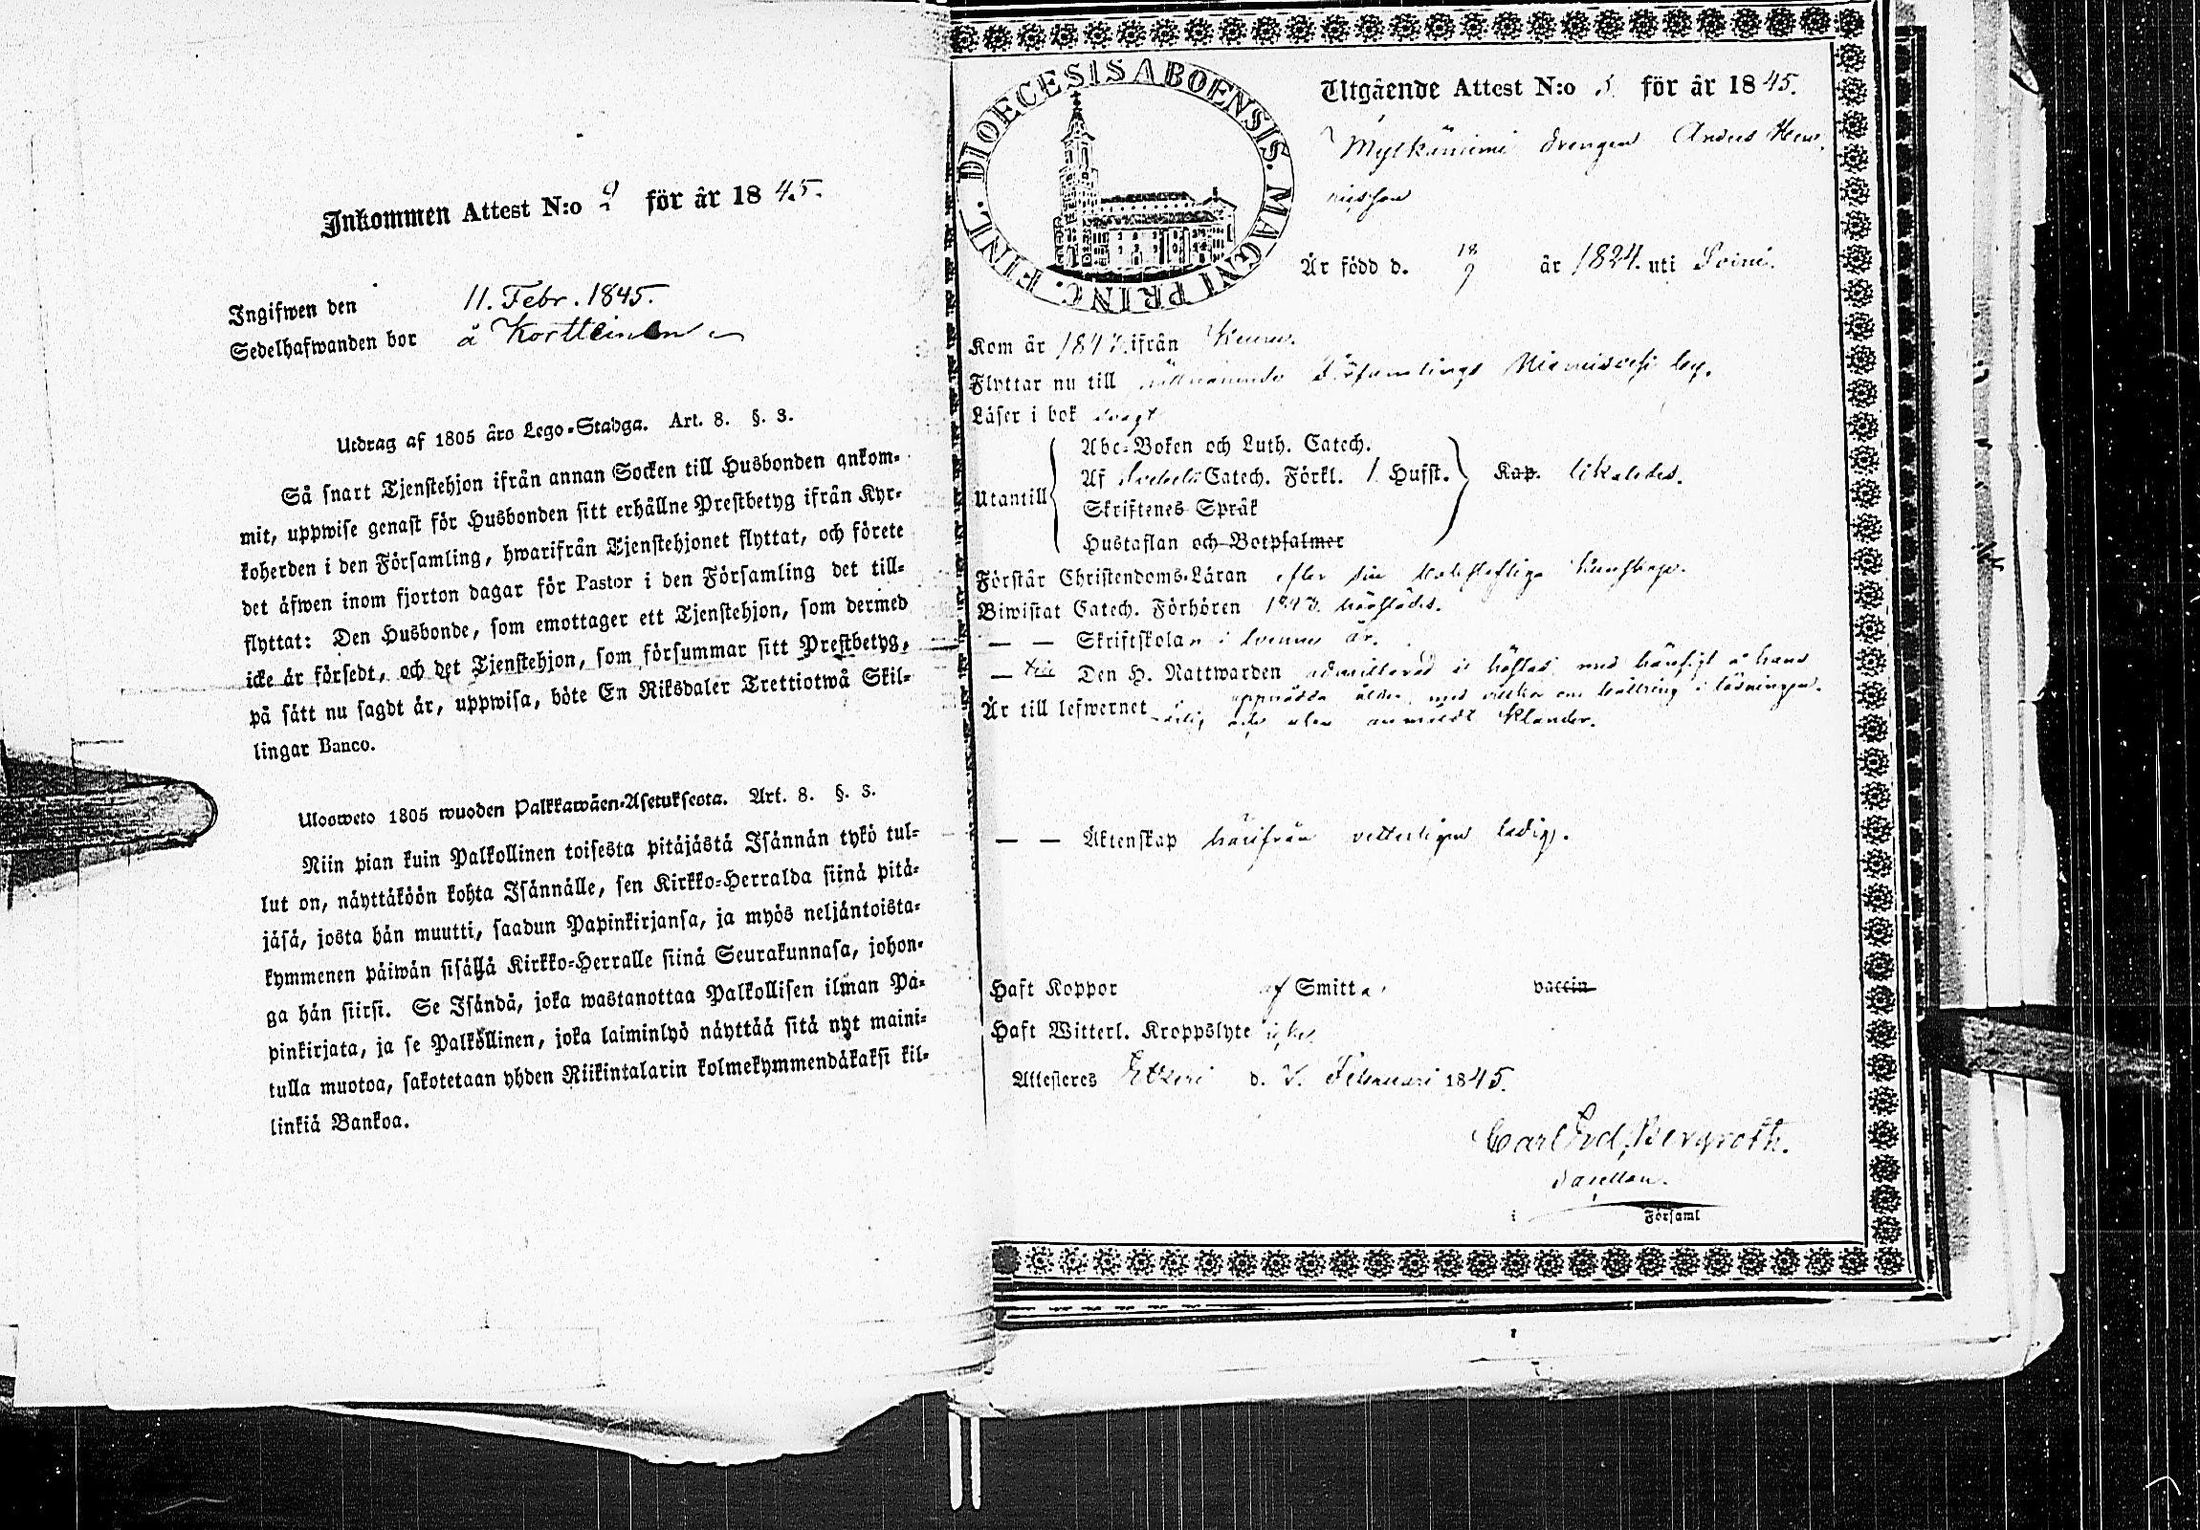 Inkommen Attest N:o 9 för år 1845.
Ingifwen den 11. Febr. 1845.
Sedelhafwanden bor å Kortteinen
Utdrag af 1805 åro Lego-Stadga. Art. 8. §. 3.
Så snart Tjenstehjon ifrån annan Socken till Husbonden ankom-
mit, uppwise genast för Husbonden sitt erhållne Prestbetyg ifrån Kyr-
koherden i den Församling, hwarifrån Tjenstehjonet flyttat, och förete
det åfwen inom fjorton dagar för Pastor i den Församling det till-
flyttat: Den Husbonde, som emottager ett Tjenstehjon, som dermed
icke år försedt, och det Tjenstehjon, som försummar sitt Prestbetyg,
på sått nu sagdt år, uppwisa, böte En Riksdaler Trettiotwå Skil-
lingar Banco.
Ulosweto 1805 wuoden Palkkawåen-Asetuksesta. Art. 8. §. 3.
Niin pian kuin Palkollinen toisesta pitåjåstå Isånnån tykö tul-
lut on, nåyttåköön kohta Isånnålle, sen Kirkko-Herralda siinå pitå-
jåså, josta hån muutti, saadun Papinkirjansa, ja myös neljåntoista-
kymmenen påiwån sisållå Kirkko-Herralle siinå Seurakunnasa, johon-
ga hån siirsi. Se Isåndå, joka wastanottaa Palkollisen ilman Pa-
pinkirjata, ja se Palkollinen, joka laiminlyö nåyttåå sitå nyt maini-
tulla muotoa, sakotetaan yhden Riikintalarin kolmekymmendåkaksi kil-
linkiå Bankoa.
DIOECESIS ABOENSIS. MAGNI PRINC. FINL.
Utgående Attest N:o 5 för år 1845.
drengen Anders Hen-
riksson
Är född d. 18/9 år 1824. uti Soini.
Kom år 184 ifrån
Flyttar nu till Församlings by.
Läser i bok svagt
Utantill
Abc-Boken och Luth. Catech.
Af Catech. Förkl. 1 Hufst. Kap. likaledes.
Skriftenes Språk
Hustaflan och Botpsalmer
Förstår Christendoms-Läran efter sin kunskap.
Biwistat Catech. Förhören härstädes.
— — Skriftskolan i år.
— Den H. Nattwarden
Är till lefwernet klander.
— — Äktenskap härifrån vetterligen ledig.
Haft Koppor af Smitta vaccin
Haft Witterl. Kroppslyte icke
Attesteres Etseri d. Februari 1845.
Carl Fred. Bergroth.
Sacellan.
i Församl